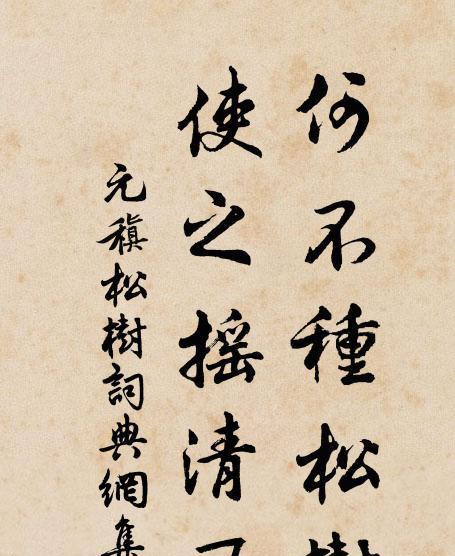 何不種松樹
使之搖清
元稹松樹詞典網集